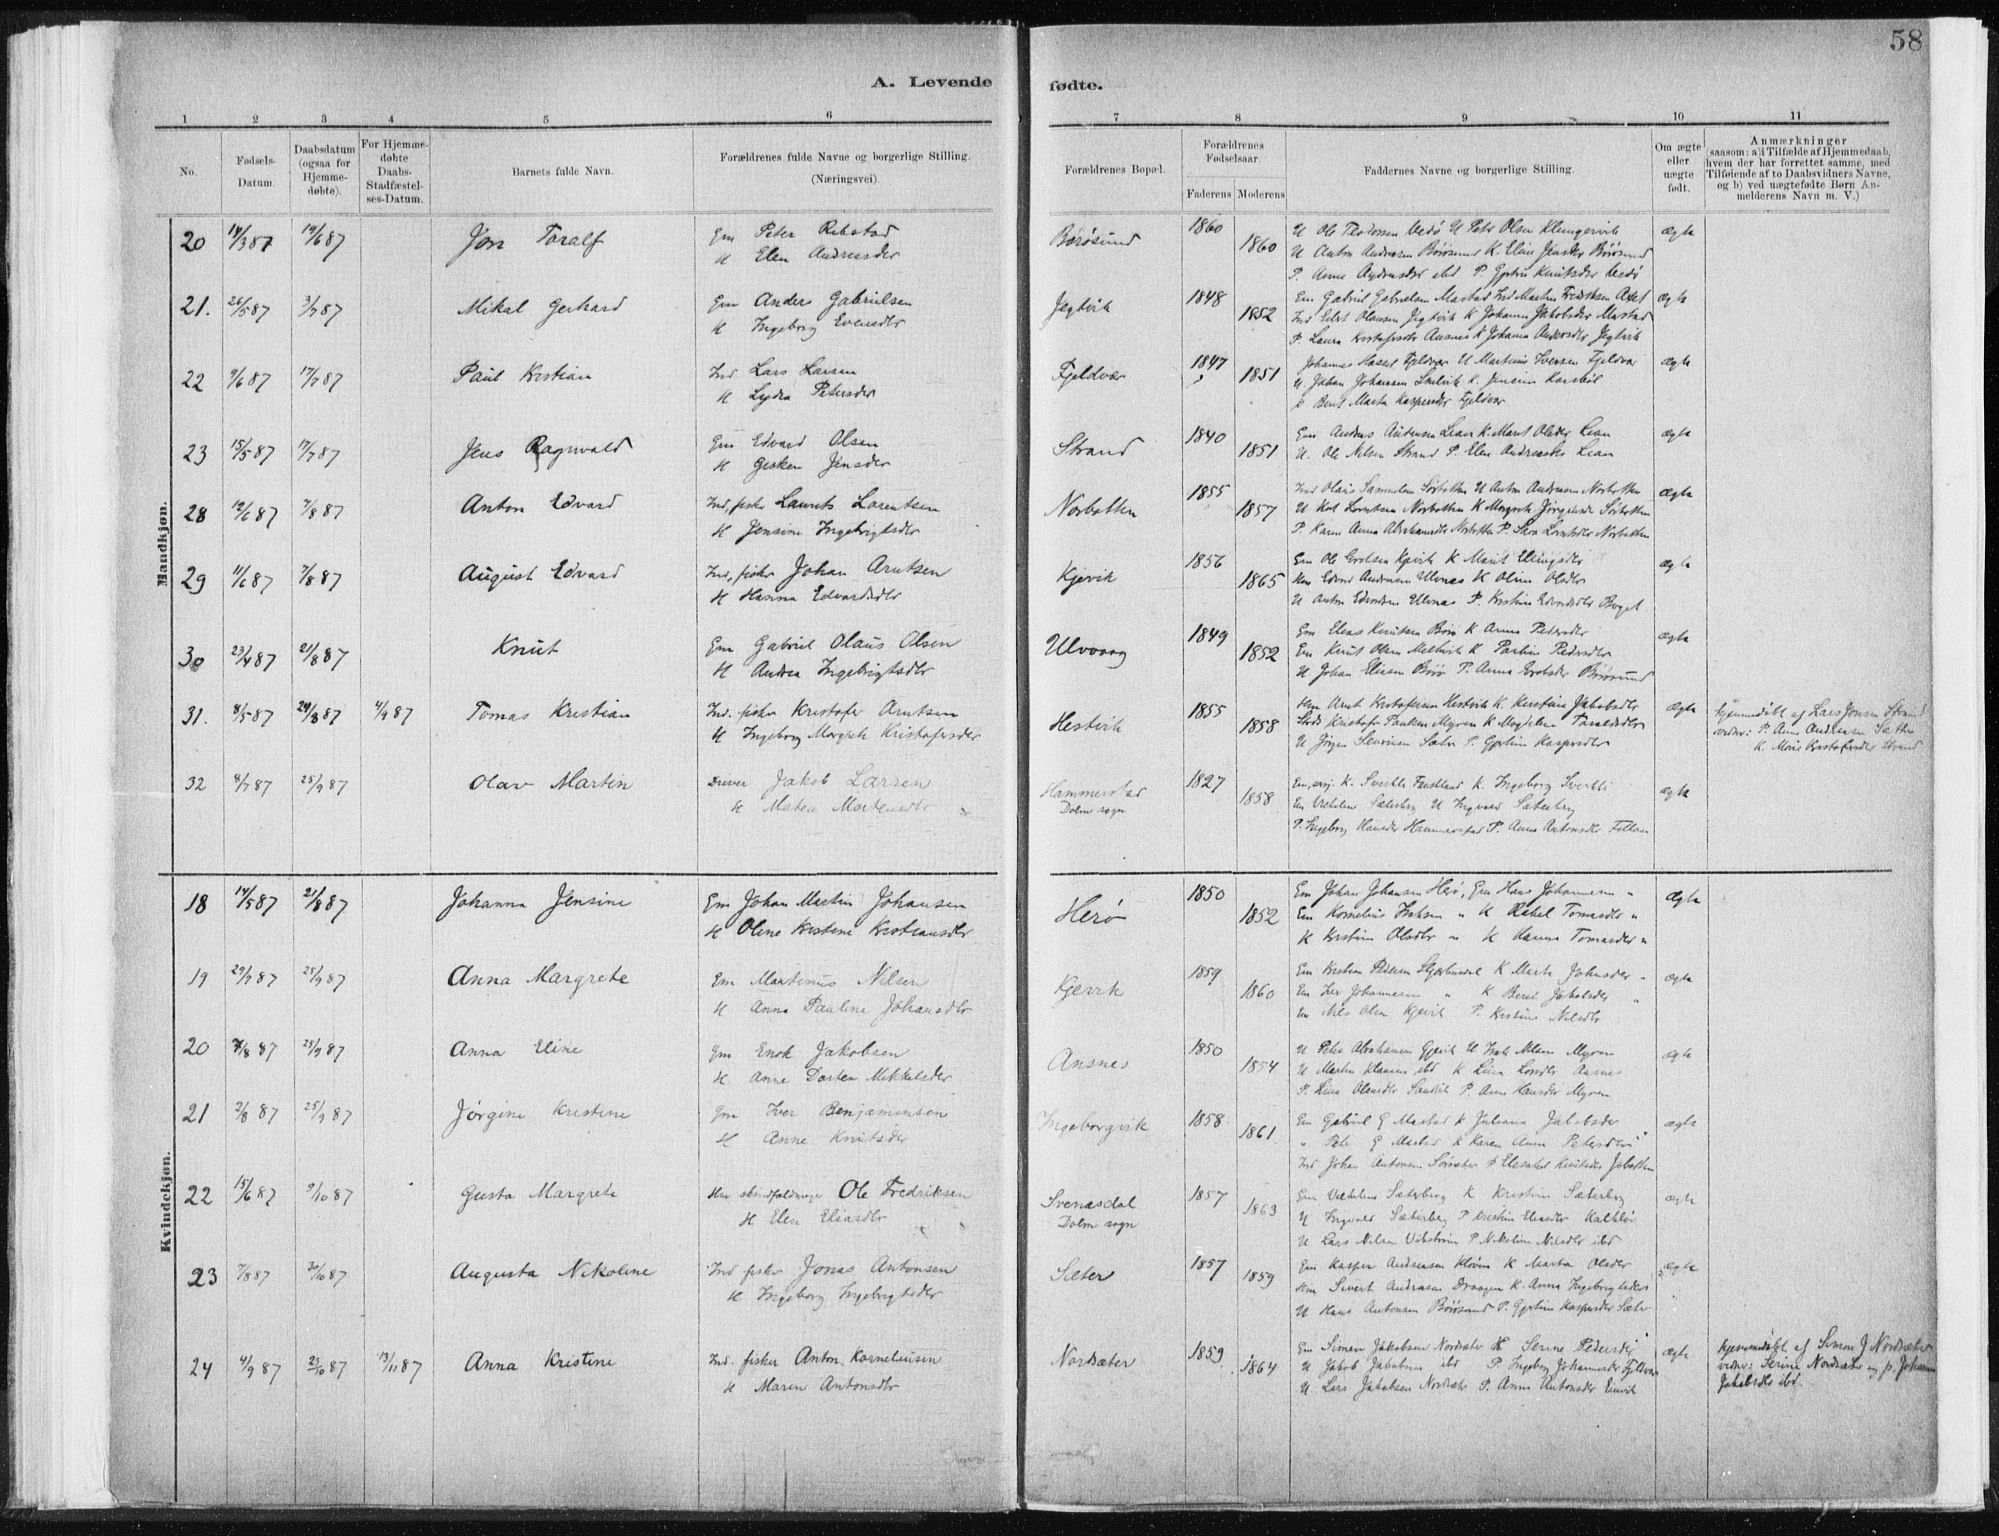 58
A. Levende
fødte.
1 2 3 4 5 6
7 8 9 10 11
No.
Fødsels-Datum.
Daabsdatum (ogsaa for Hjemmedøbte).
For Hjemmedøbte Daabs-Stadfæstelses-Datum.
Barnets fulde Navn.
Forældrenes fulde Navne og borgerlige Stilling.
(Næringsvei).
Forældrenes Bopæl.
Forældrenes Fødselsaar.
Faderens Moderens
Faddernes Navne og borgerlige Stilling.
Om ægte eller uægte født.
Anmærkninger
(saasom: a) i Tilfælde af Hjemmedaab,
hvem der har forrettet samme, med
Tilføiende af to Daabsvidners Navne,
og b) ved uægtefødte Børn Anmelderens Navn m. V.)
Mandkjøn.
20 14/3 87 19/6 87 Jon Toralf Gm Peter Rebstad
H Elen Andreasdr
Børøsund 1860 1860 U Ole U Peter Olsen Klungervik ægte
U Anton Andreasen Børøsund K. Eline Børøsund
P. Anne ibd P. Gjertine Knutsdr
21. 26/5 87 3/7 87 Mikal Gerhard Gm Anders Gabrielsen
H Ingeborg Evensdtr
Jegtvik 1848 1852 Gm Gabriel Gabrielsen Mastad Ind Martin Fredriksen ægte
Ind Edet Olausen Jegtvik K Johanna Jakobsdtr Mastad
P. Laura Kristofersdtr Aasnes K Johanna Andersdtr Jegtvik
22 9/6 87 17/7 87 Paul Kristian Ind Lars Larsen
H Lydia Petersdr
Fjeldvær 1847 1851 Johannes Hassel Fjeldvær U Martinus Iversen Fjeldvær ægte
U. Johan Johansen K. Jensine
P. Berit Marta Kaspersdr Fjeldvær
23 15/5 87 17/7 87 Jens Ragnvald Gm Edvard Olsen
H Gesken Jensdr
Strand 1840 1851 Gm Anders Antonsen Lian K. Marit Olsdtr Lian ægte
U. Ole Nilsen Strand P Elen Andreasdtr Lian
28 12/6 87 7/8 87 Anton Edvard Ind, fisker Laurits Lorentsen
H Jensine Ingebrigtsdr
Norbotten 1855 1857 Ind Olaus Samuelsen Sørbotten U Anton Andreasen Norbotten ægte
U Karl Lorentsen Norbotten K Margrete Jørgensdr Sørbotten
P. Karen Anna Abrahamsdtr Norbotten P. Sara Lorentsdtr Norbotten
29 11/6 87 7/8 87 August Edvard Ind, fisker Johan Arntsen
H Hanna Edvardsdtr
Kjevik 1856 1865 Gm Ole Kjevik K Marit Ellingsdtr ægte
Hm Edvard Andreasen Ulvnes K Oline Olsdtr
U Anton Edvardsen Ulvnes P. Kristine Edvardsdtr
30 23/4 87 21/8 87 Knut Gm Gabriel Olaus Olsen
H Andrea Ingebrigtsdtr
Ulvvaag 1849 1852 Gm Elias Knutsen Børø K Anna Pedersdtr ægte
Gm Knut Olsen K Pedersdtr
U Johan Eliasen Børø P. Anna Børøsund
31. 8/5 87 29/8 87 4/9 87 Tomas Kristian Ind. fisker Kristofer Arntsen
H Ingeborg Margrete Kristofersdr
Hestvik 1855 1858 Hm Arnt Kristofersen Hestvik K. Kerstine Jakobsdtr ægte
Kristofer Paulsen Myren K Magdalena Taraldsdtr
U Jørgen Sæter P Gjertine Kaspersdtr
hjemmedøbt af Lars Jonsen Strand
P. Anne Andreasen
K. Marie Kristofersdr Strand
32 8/7 87 25/9 87 Olav Martin Driver Jakob Larsen
H Matea Mortensdtr
Hammerstad 1827 1858 K. Svertli Faustland K. Ingeborg Svertli ægte
Dolm sogn
Gm Vilhelm Sæterberg U Ingvald Sæterberg
P. Ingeborg Hansdr Hammerstad P. Anna Antonsdtr
Kvindekjøn.
18 14/5 87 21/8 87 Johanna Jensine Gm Johan Martin Johansen
H Oline Kristine Kristiansdtr
Herø 1850 1852 Gm Johan Johansen Herø, Gm Hans Johannesen " Ægte
Gm Kornelius Isaksen " K Rakel Tomasdtr "
K Kristine Olsdtr " K Hanna Tomasdtr "
19 29/7 87 25/9 87 Anna Margrete Gm Martinus Nilsen
H Anna Pauline Johansdtr
Kjervik 1859 1860 Gm Kristian Pedersen K Marta Johnsdtr " ægte
Gm Iver Johannesen " K Berit Jakobsdtr "
Gm Nils Olsen Kjevik P. Kristine Nilsdtr
20 7/8 87 25/9 87 Anna Eline Gm Enok Jakobsen
H Anne Dortea Mikkelsdr
Ansnes 1850 1854 U Peter Abrahamsen U Isak Nilsen Myren ægte
U Martin ibd K Lina Aasnes
P. Lina Olausdtr P. Anna Hansdr Myren
21 2/8 87 25/9 87 Jørgine Kristine Gm Iver Benjaminsen
H Anne Knutsdr
Ingeborgvik 1858 1861 Gm Gabriel G Mastad K Juliana Jakobsdr ægte
" Peter G Mastad K Karen Anna Petersdtr "
Ind Johan Antonsen P Elisabet Knutsdr
22 15/6 87 9/10 87 Gusta Margrete Hm skindfeldmager Ole Fredriksen
H Elen Eliasdtr
Svenasdal 1857 1863 Gm Vilhelm Sæterberg K Kristine Sæterberg ægte
Dolm sogn
U Ingvald Sæterberg P Kristine Eliasdtr
U Lars Nilsen P Nikoline Nilsdtr ibd
23 7/8 87 30/10 87 Augusta Nikoline Ind fisker Jonas Antonsen
H Ingeborg Ingebrigtsdr
Sæter 1857 1859 Gm Kasper Andreasen K Marta Olsdr ægte
Hm Sivert Andreasen Draagen K. Anna Ingebrigtsdtr
U Hans Antonsen Børøsund P. Gjertine Kaspersdtr Sæter
24 4/9 87 23/10 87 13/11 87 Anna Kristine Ind. fisker Anton Korneliussen
H Maren Antonsdtr
Nordsæter 1859 1864 Gm Simon Jakobsen Nordsæter K Serine Pedersdr ægte
U Jakob Jakobsen ibd P Ingeborg Johannesdr Fjeldvær
U Lars Jakobsen Nordsæter P. Anna Antonsdtr
hjemmedøbt af Simon J Nordsæter
vidner: Serine Nordsæter og p. Johanna
Jakobsdtr ibd.